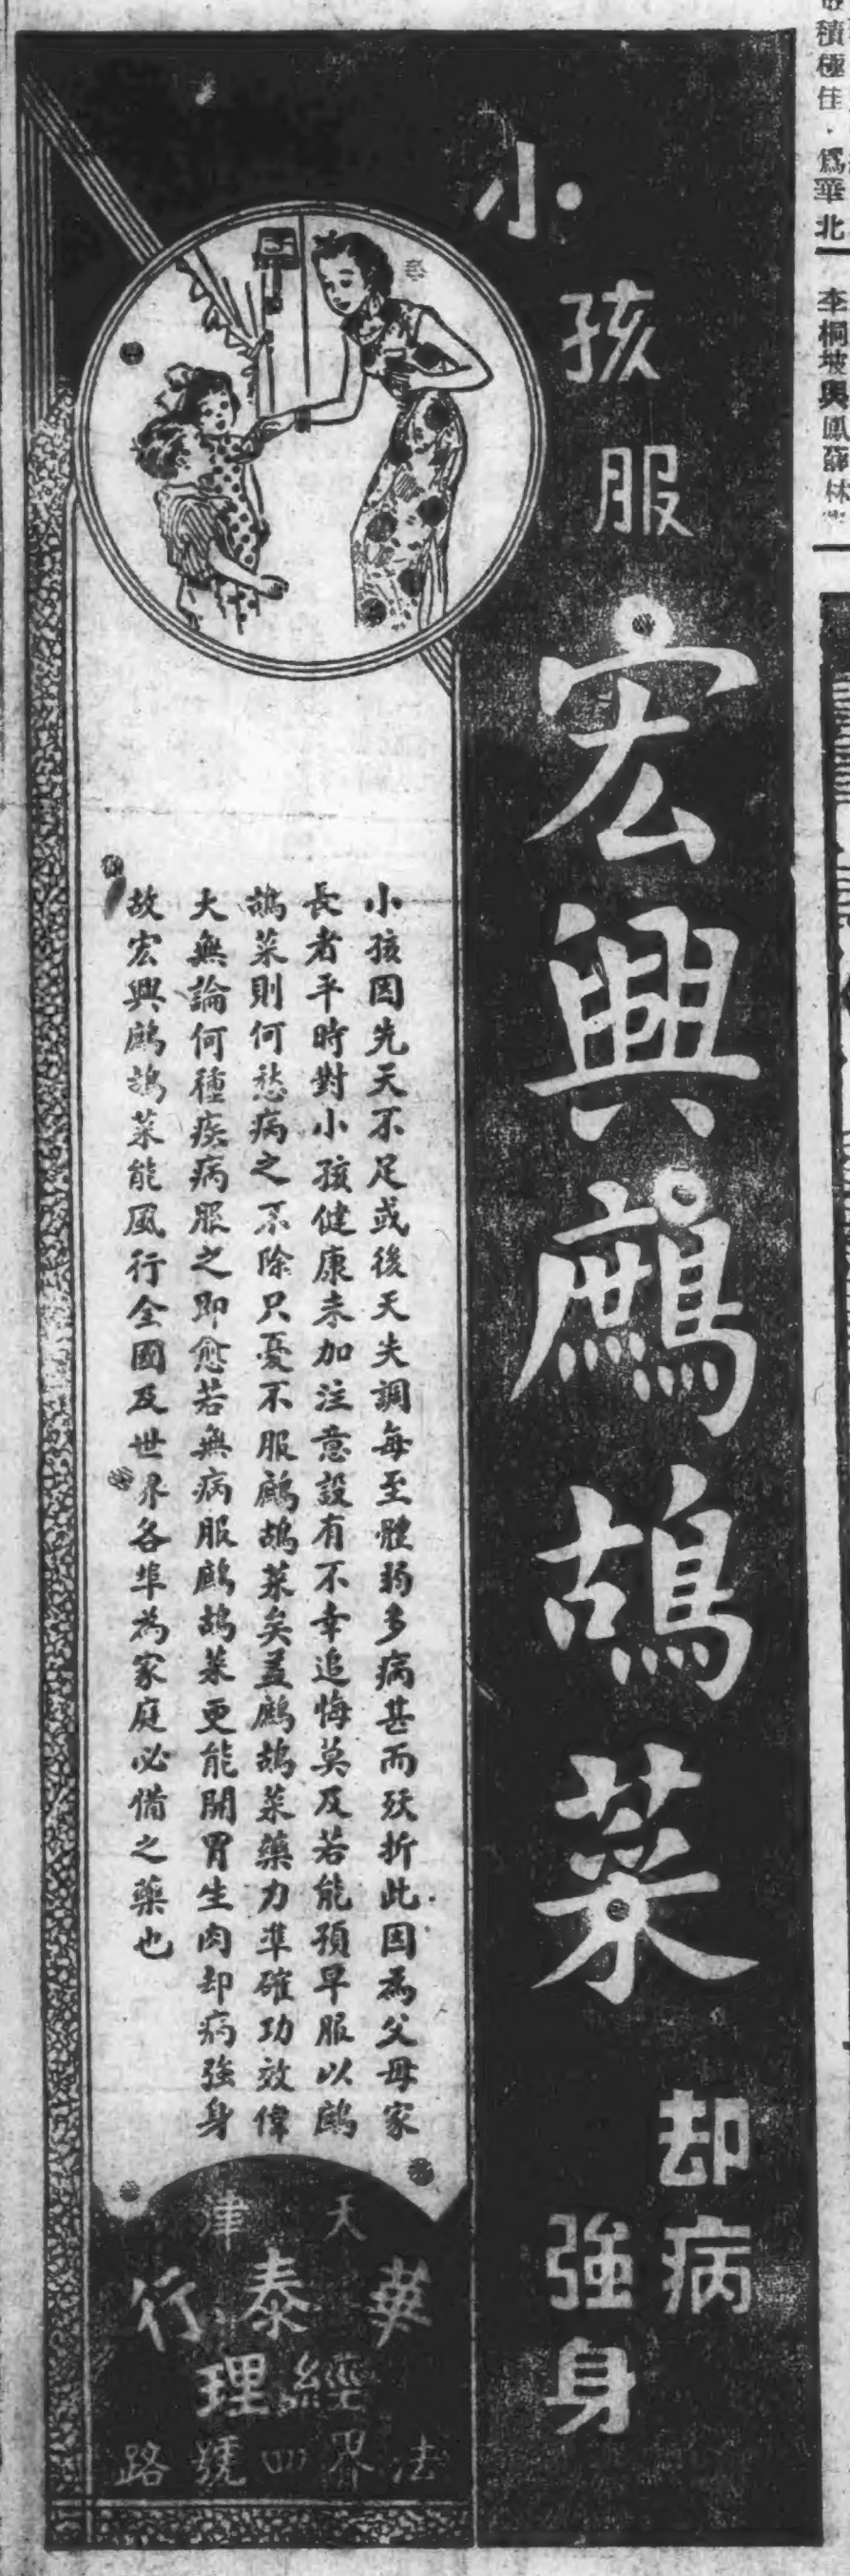 小孩服
宏興鷓鴣菜
却病
強身
小孩因先天不足或後天失調每至體弱多病甚而殀折此因為父母家
長者平時對小孩健康未加注意設有不幸追悔莫及若能預早服以鷓
鴣菜則何愁病之不除只憂不服鷓鴣菜矣蓋鷓鴣菜藥力準確功效偉
大無論何種疾病服之即愈若無病服鷓鴣菜更能開胃生肉却病強身
故宏興鷓鴣菜能風行全國及世界各埠為家庭必備之藥也
天津
華泰行
經理
法界四號路
積極佳．為華北
李桐坡與鳳薛林